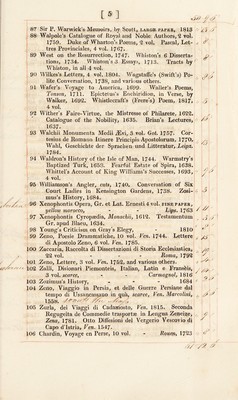 [ 5 ]
87 Sir P. Warwick's Memoirs, by Scott, LARGE PAPER, 1813
88 Walpole's Catalogue of Royal and Noble Authors, 2 vol.
1759. Duke of Wharton's Poems, 2 vol. Pascal, Let-
tres Provinciales, 4 vol. 1767.
89 West on the Resurrection, 1747. Whiston's 6 Disserta-
tions, 1734. Whiston's 3 Essays, 1713. Tracts by
Whiston, in all 4 vol.
90 Wilkes's Letters, 4 vol. 1804. Wagstaffe's (Swift's) Po-
lite Conversation, 1738, and various others.
91 Wafer's Voyage to America, 1699. Waller's Poems,
Tonson, 1711. Epictetus's Enchiridion, in Verse, by
Walker, 1692. Whistlecraft's (Frere's) Poem, 1817,
4 vol.
92 Wither's Faire-Virtue, the Mistresse of Philarete, 1622.
Catalogue of the Nobility, 1635. Brian's Lectures,
1637.
93 Walchii Monumenta Medii Ævi, 3 vol. Got. 1757. Cor-
tesius de Romano Itinere Principis Apostolorum, 1770.
Wahl, Geschichte der Sprachen und Litteratur, Leipz.
1784.
94 Waldron's History of the Isle of Man, 1744. Warmstry's
Baptized Turk, 1658. Fearful Estate of Spira, 1678.
Whittel's Account of King William's Successes, 1693,
4 vol.
95 Williamson's Angler, cuts, 1740. Conversation of Six
Court Ladies in Kensington Gardens, 1738. Zosi-
mus's History, 1684.
96 Xenophontis Opera, Gr. et Lat. Ernesti 4 vol. FINE PAPER,
yellow morocco, Lips. 1763
97 Xenophontis Cyropædia, Monachi, 1612. Testamentum
Gr. apud Blaeu, 1634.
98 Young's Criticism on Gray's Elegy, 1810
99 Zeno, Poesie Drammatiche, 10 vol. Ven. 1744. Lettere
di Apostolo Zeno, 6 vol. Ven. 1785.
100 Zaccaria, Raccolta di Dissertazioni di Storia Ecclesiastica,
22 vol. - Roma, 1792
101 Zeno, Lettere, 3 vol. Ven. 1752, and various others.
102 Zalli, Disionari Piemontèis, Italian, Latin e Fransèis,
3 vol. scarce, Carmagnol, 1816
103 Zosimus's History, - - 1684
104 Zeno, Viaggio in Persia, et delle Guerre Persiane dal
tempo di Ussuncassano in quà, scarce, Ven. Marcolini,
1558.
105 Zurla, dei Viaggi di Cadamosto, Ven. 1815. Seconda
Regugeita de Commedie trasporte in Lengua Zeneize,
Zena, 1781. Otto Diffesioni del Vergerio Vescovio di
Capo d'Istria, Ven. 1547.
106 Chardin, Voyage en Perse, 10 vol. - Rouen, 1723